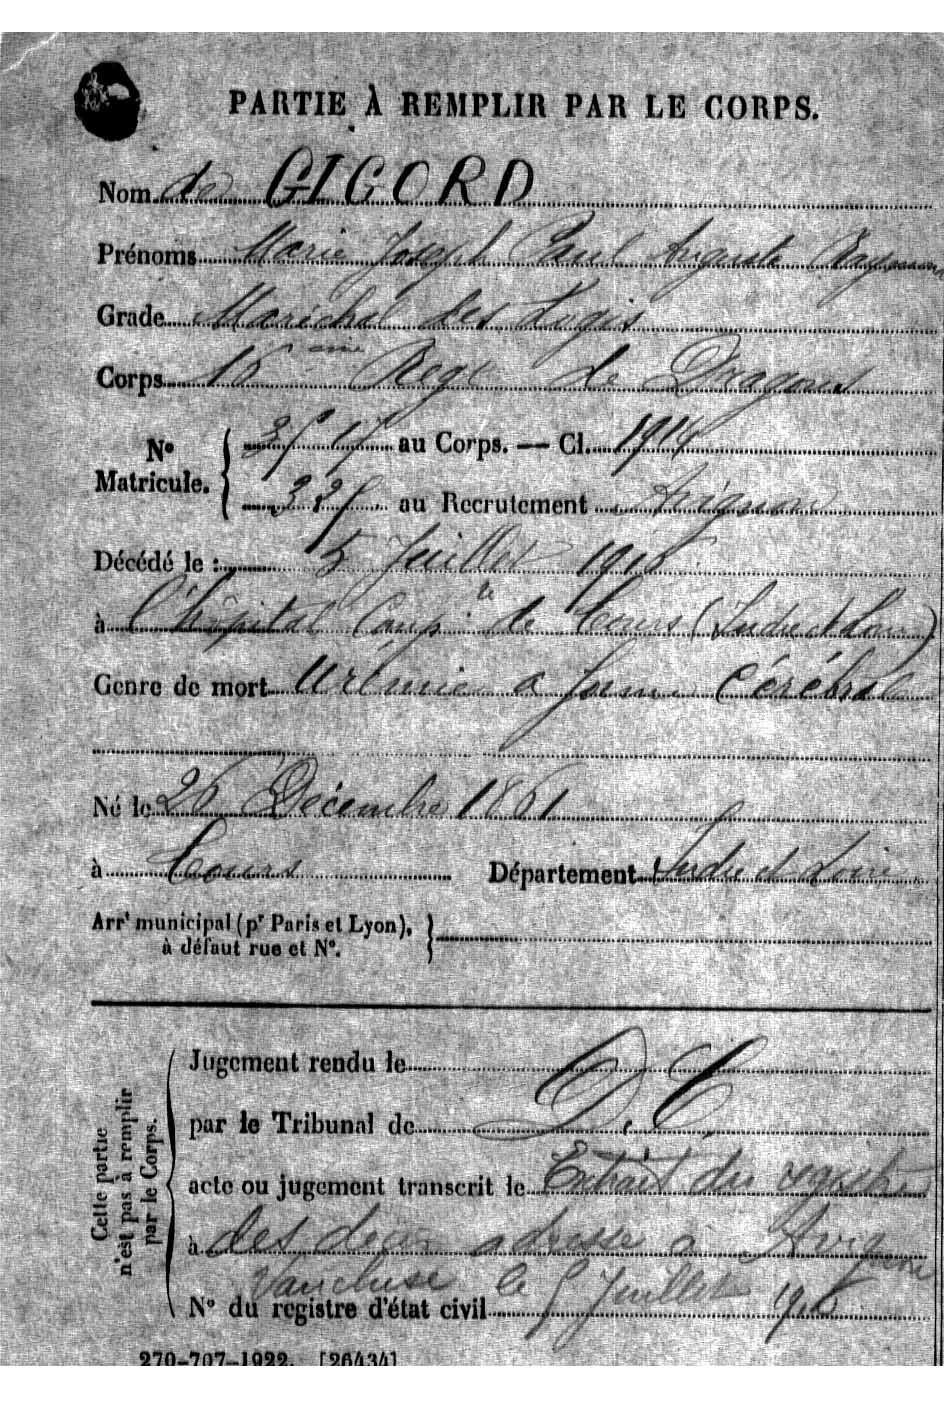 PARTIE À REMPLIR PAR LE CORPS.
Nom de GIGORD
Prénoms Marie Joseph Paul Auguste Raymond
Grade Maréchal des Logis
Corps 16ème Régt de Dragons
N° Matricule. au Corps. — Cl. 1914
au Recrutement Avignon
Décédé le : 5 Juillet 1916
à l'hôpital Compre de Tours (Indre et Loire)
Genre de mort Urémie a forme cérébrale
Né le 26 Décembre 1861
à Tours Département Indre et Loire
Arrt municipal (pr Paris et Lyon),
à défaut rue et N°.
Cette partie
n'est pas à remplir
par le Corps.
Jugement rendu le
par le Tribunal de D. C.
acte ou jugement transcrit le Extrait du registre
à des décès adressé à Avignon
Vaucluse le 5 Juillet 1916
N° du registre d'état civil
270-707-1922. [26434]